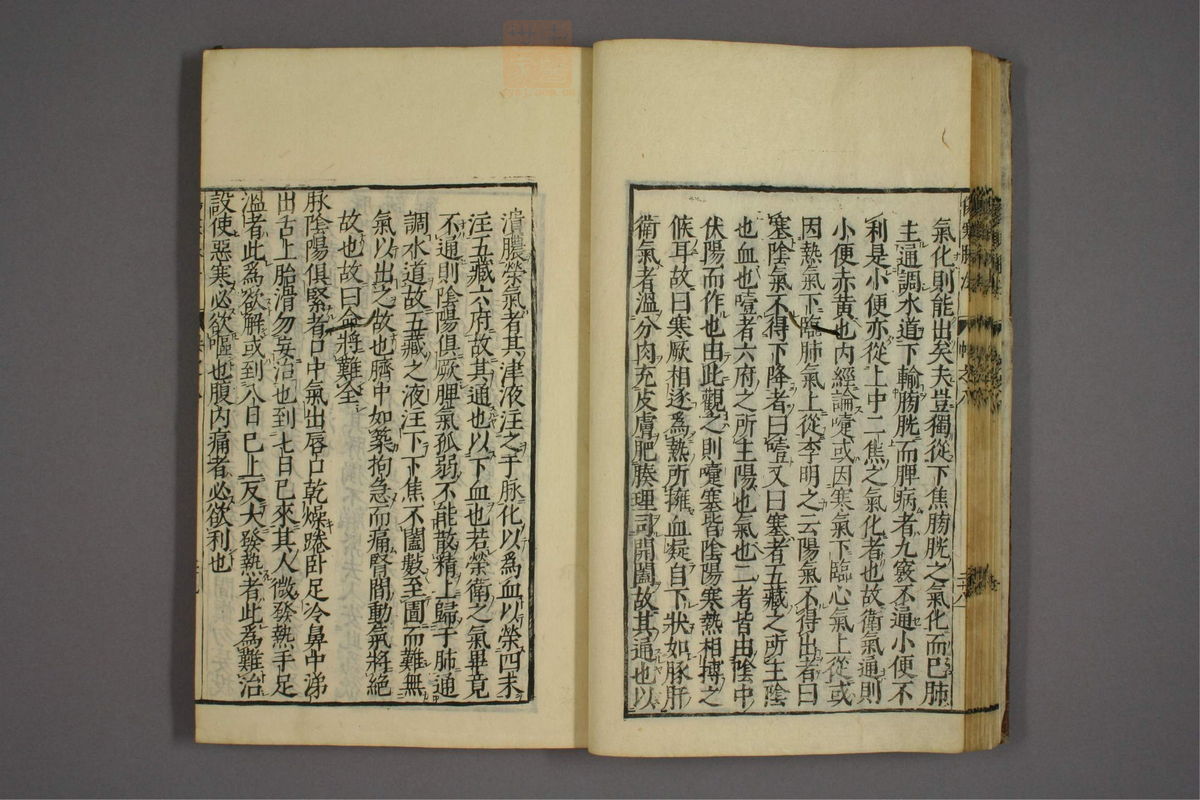 氣化則能出矣夫豈獨從下焦膀胱之氣化而已肺
主通調水道下輸膀胱而脾病者九竅不通小便不
利是小便亦從上中二焦之氣化者也故衛氣通則
小便赤黃也內經論嚏或因寒氣下臨心氣上從或
因熱氣下臨肺氣上從李明之云陽氣不得出者曰
塞陰氣不得下降者曰噎又曰塞者五藏之所主陰
也血也噎者六府之所主陽也氣也二者皆由陰中
伏陽而作也由此觀之則嚏塞皆陰陽寒熱相搏之
候耳故曰寒厥相逐爲熱所擁血凝自下狀如豚肝
衛氣者溫分肉充皮膚肥腠理司開闔故其通也以
潰膿榮氣者其津液注之于脉化以爲血以榮四末
注五藏六府故其通也以下血也若榮衛之氣畢竟
不通則陰陽俱厥脾氣孤弱不能散精上歸于肺通
調水道故五藏之液注下下焦不闔數至圊而難無
氣以出之故也臍中如築拘急而痛腎間動氣將絕
故也故曰命將難全
脉陰陽俱緊者口中氣出唇口乾燥踡卧足冷鼻中涕
出舌上胎滑勿妄治也到七日已來其人微發熱手足
溫者此爲欲解或到八日已上反大發熱者此爲難治
設使惡寒必欲嘔也腹內痛者必欲利也